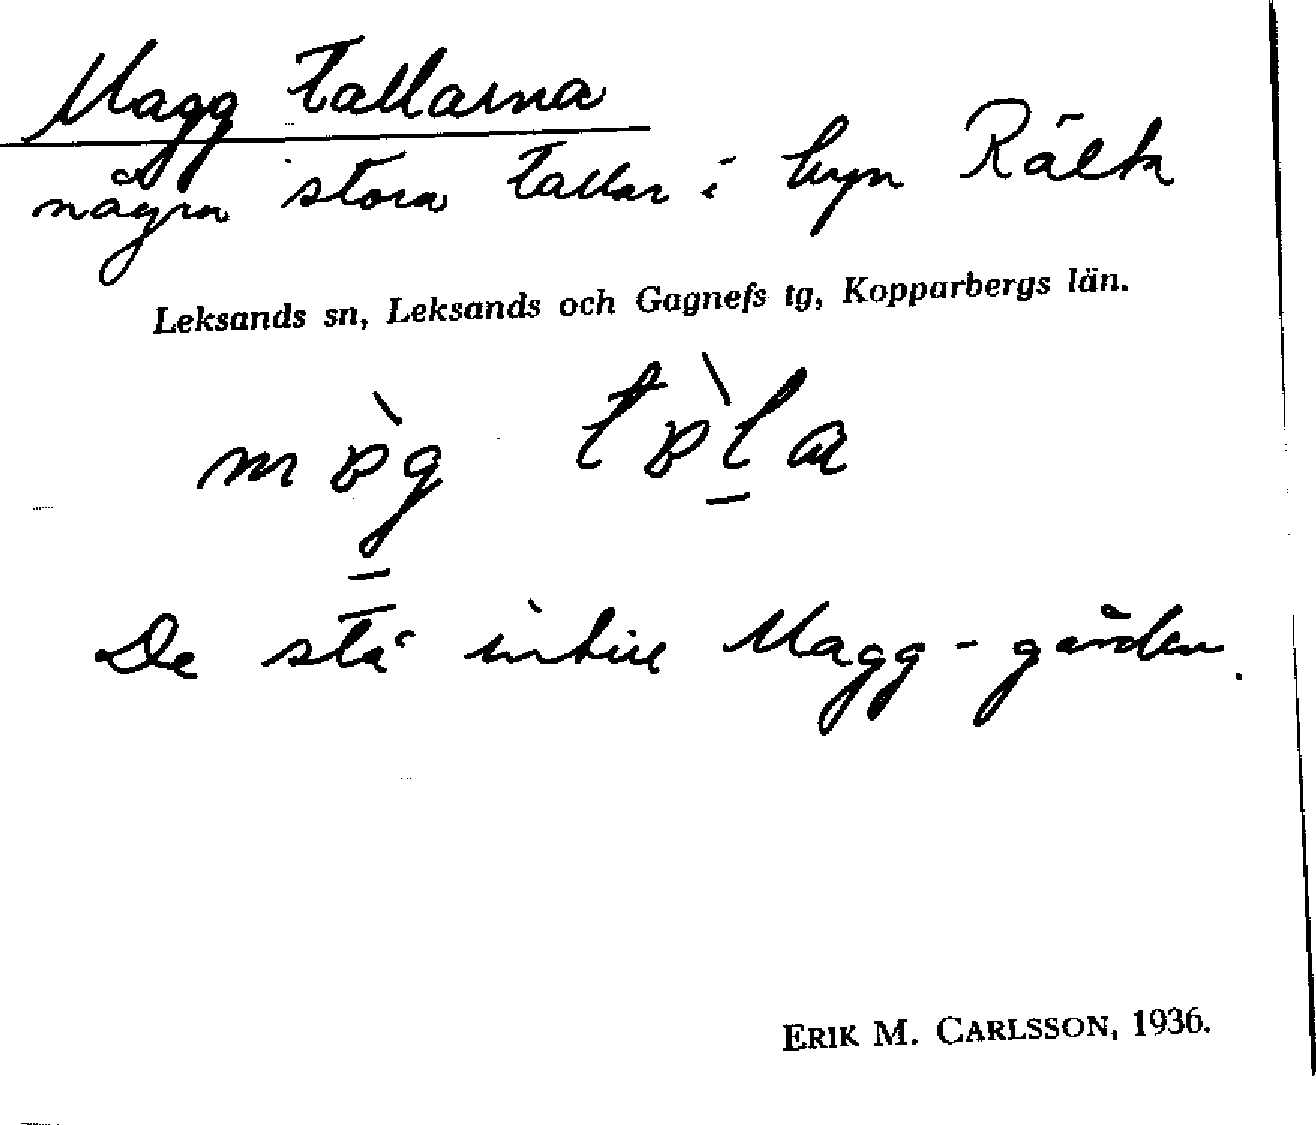 Magg tallarna
några stora tallar i byn Rälta
Leksands sn, Leksands och Gagnefs tg, Kopparbergs län.
De stå intill Magg-gården.
ERIK M. CARLSSON, 1936.